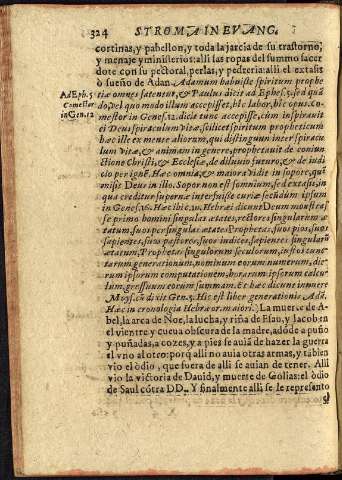 324 STROMA IN EVANG.
cortinas, y pabellon, y toda la jarcia de su trastorno,
y menaje y ministerios: alli las ropas del summo sacer
dote con su pectoral, perlas, y pedreria: alli el extasis
ò sueño de Adan. Adamum habuisse spiritum prophe
tiæ omnes fatentur, & Paulus dicit ad Ephes. 5. sed quã
do, vel quo modo illum accepisset, hic labor, hoc opus. Co-
mestor in Genes. 12. dicit tunc accepisse, cum inspirauit
ei Deus spiraculum vitæ, scilicet spiritum propheticum
hæc ille ex mente aliorum, qui distinguun inter spiracu
lum vitæ, & animam in genere, prophetauit de coniun
ctione Christi, & Ecclesiæ, de diluuio futuro, & de iudi
cio per ignẽ. Hæc omnia, & maiora vidit in sopore, quẽ
misit Deus in illo. Sopor non est somnium, sed extasis, in
qua creditur supernæ interfuisse curiæ secũdum ipsum
in Genes. 16. Hæc ibi c. 19. Hebræi dicunt Deum monstras
se primo homini singulas ætates, rectores singularum æ
tatum, suos per singulas ætates Prophetas, suos pios, suos
sapientes, suos pastores, suos iudices, sapientes singularũ
ætarum, Prophetas singulorum seculorum, iustos cunc
tarum generationum, nominum eorum numerum, die
rum ipsorum computationẽ, horarum ipsorum calcu
lum, gressuum eorum summam. Et hæc dicunt innuere
Moys. cũ dixit Gen. 5. Hic est liber generationis Adã,
Hæc in cronologia Hebræor. maiori. La muerte de A-
bel, la area de Noe, la lucha, y riña de Esau, y Iacob en
el vientre y cueua obscura de la madre, adõde a puño
y puñadas, a cozes, y a pies se auiã de hazer la guerra
el vno al otro: porq̃ alli no auia otras armas, y tãbien
vio el òdio, que fuera de alli se auian de tener. Alli
vio la victoria de Dauid, y muerte de Golias: el òdio
de Saul cõtra DD. Y finalmente alli se le represento
Ad Eph. 5
Comestor
in Gen. 12